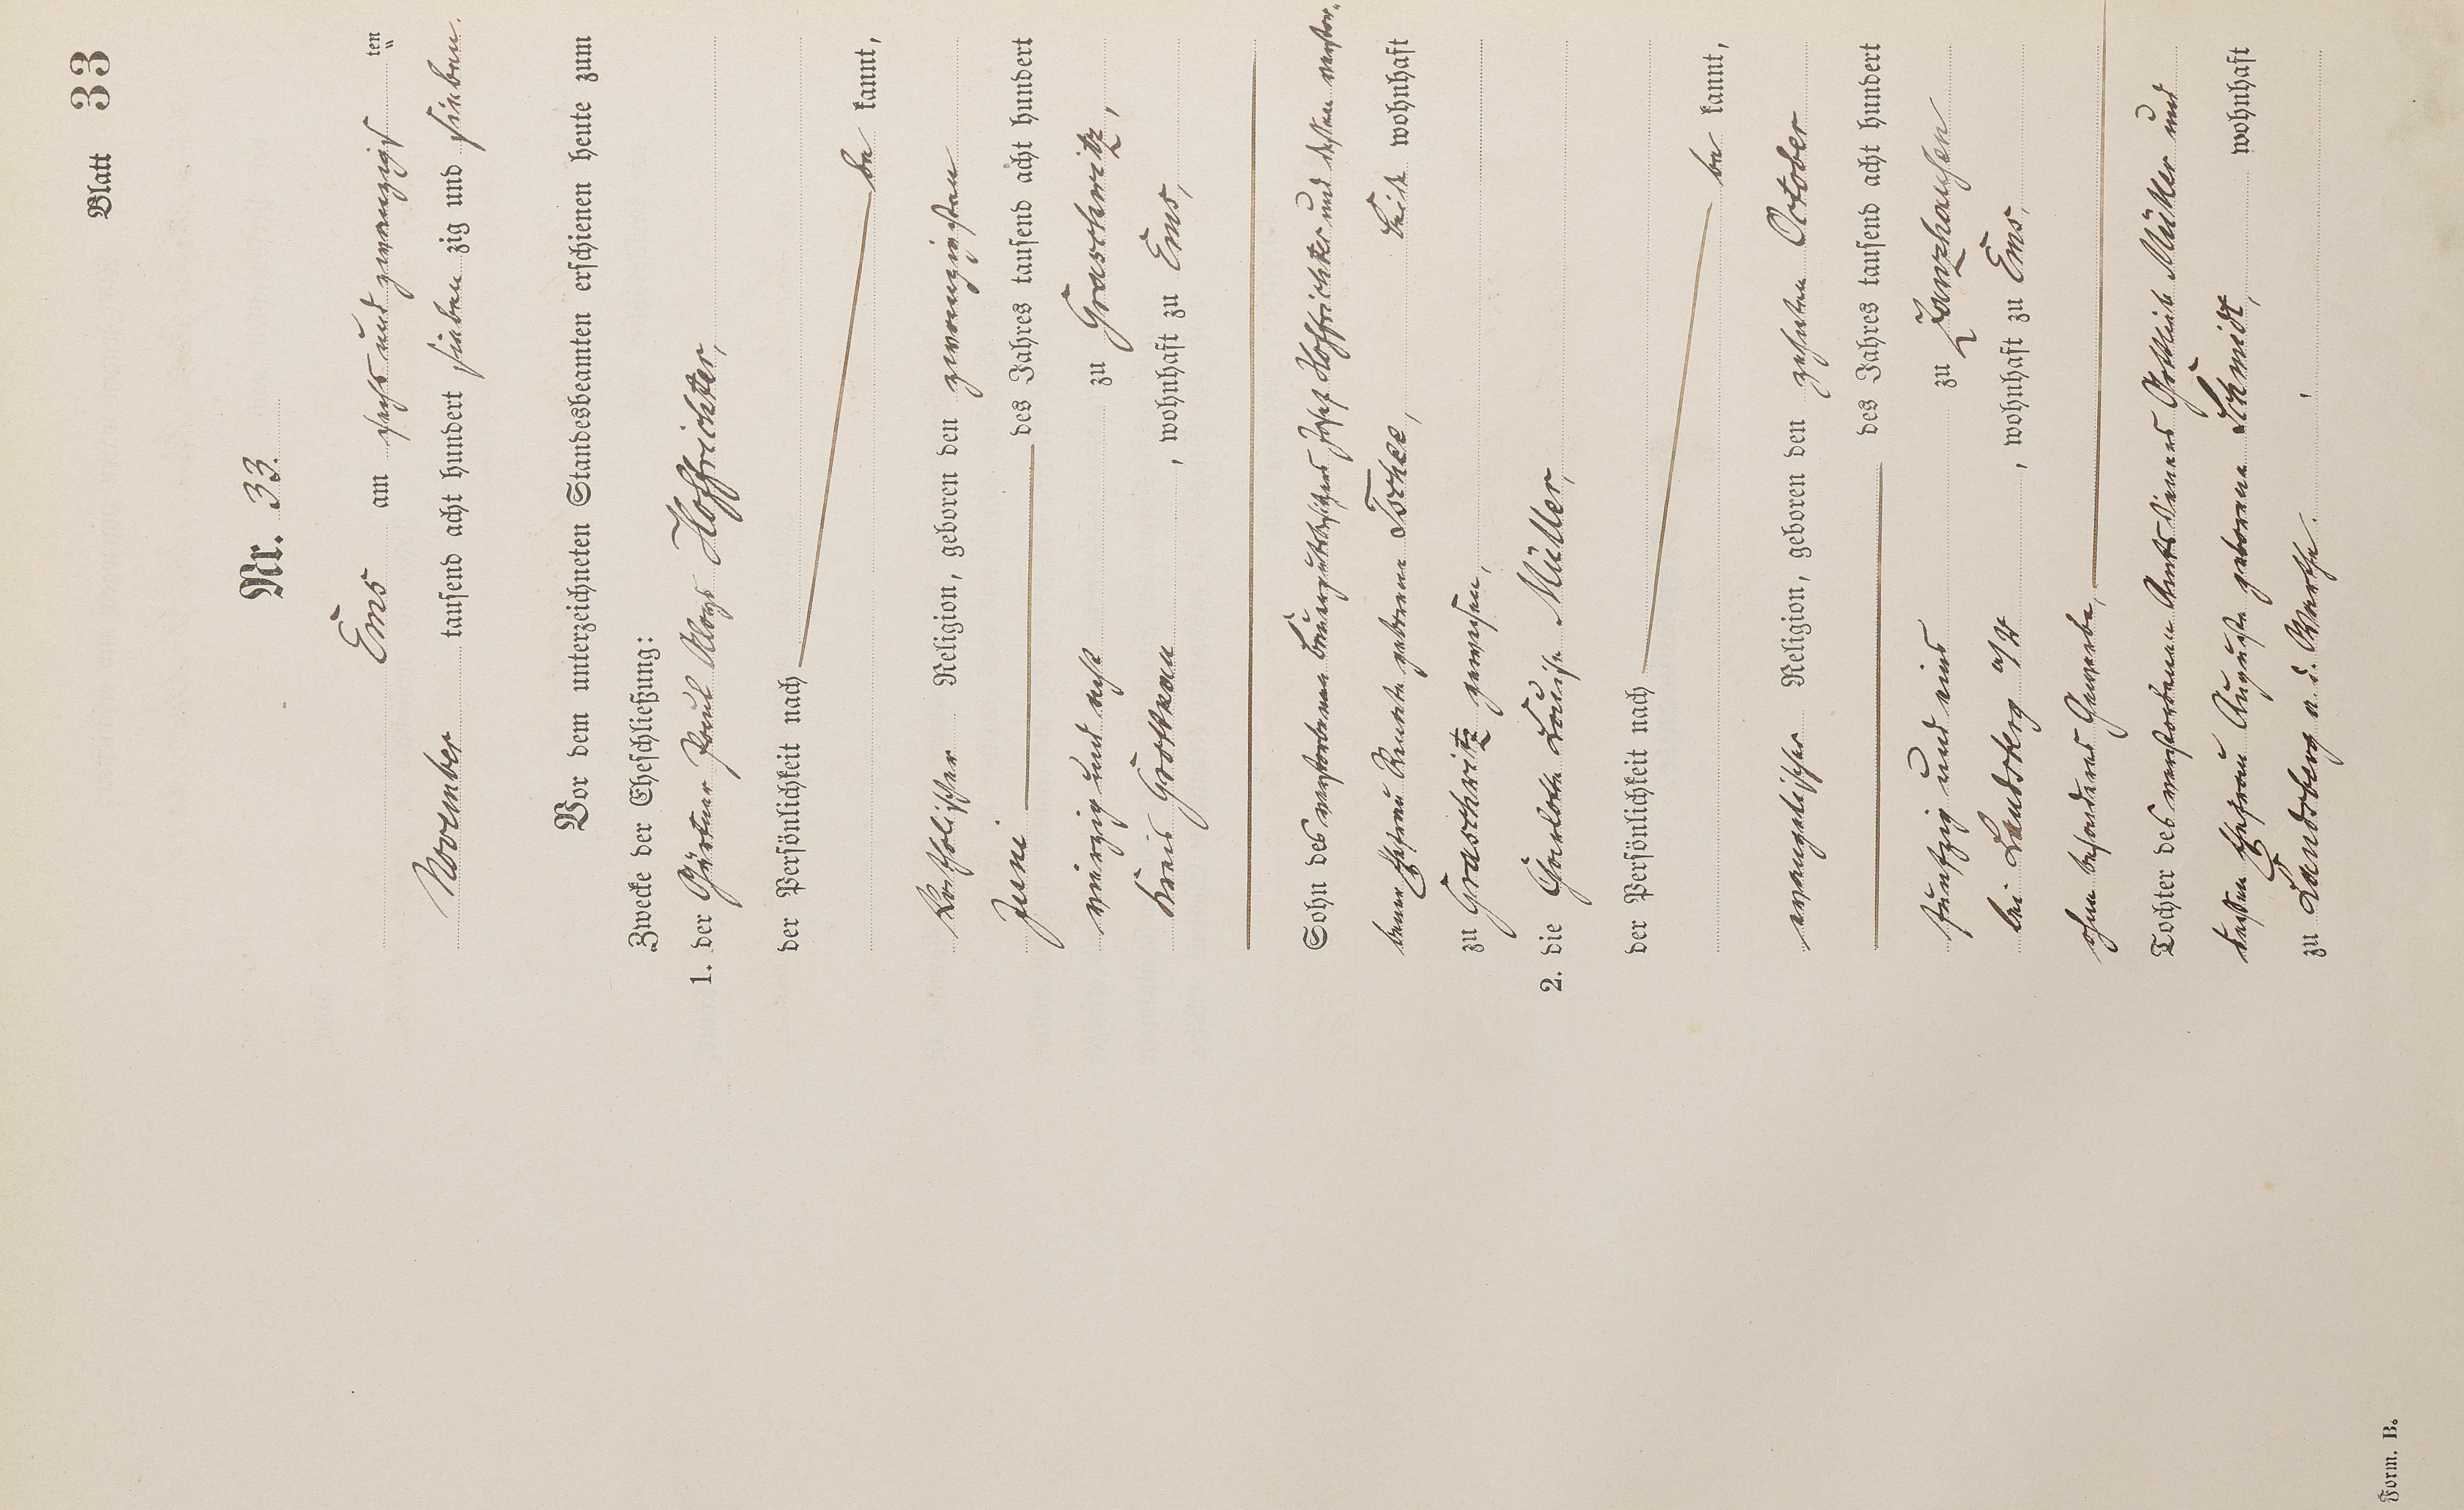 Blatt 33
Nr. 33.
Ems am sechs und zwanzigs ten
November tausend acht hundert sieben zig und sieben.
Vor dem unterzeichneten Standesbeamten erschienen heute zum
Zwecke der Eheschließung:
1. der Gärtner Paul Aloys Hoffrichter,
der Persönlichkeit nach
be kannt,
katholischer Religion, geboren den zwanzigsten
Juni des Jahres tausend acht hundert
vierzig und acht zu Graschwitz,
Kreis Grottkau, wohnhaft zu Ems,
Sohn des verstorbenen Bauergutsbesitzers Josef Hoffrichter und dessen verstor-
benen Ehefrau Renate geborene Tschee, beide wohnhaft
zu Graschwitz gewesen,
2. die Charlotte Louise Müller,
der Persönlichkeit nach
be kannt,
evangelischer Religion, geboren den zehnten October
des Jahres tausend acht hundert
fünfzig und eins zu Zanzhausen
bei Landsberg a/W, wohnhaft zu Ems,
ohne besonderes Gewerbe,
Tochter des verstorbenen Amtsdieners Gottlieb Müller und
dessen Ehefrau Auguste geborene Schmidt, wohnhaft
zu Landsberg a. d. Warthe.
Form. B.